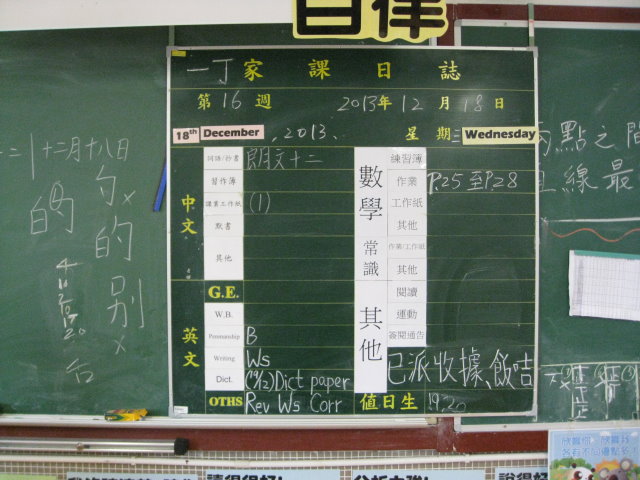 自律
一丁家課日誌
第16週 2013年12月18日
18th December, 2013. 星期三 Wednesday
中文
詞語/抄書 朗文十二
習作簿
課業工作紙 (1)
默書
其他
英文
G.E.
W.B.
Penmanship B
Writing Ws
Dict. Dict paper
OTHS Rev Ws Corr
數學
練習簿
作業 P.25至P.28
工作紙
其他
常識
作業/工作紙
其他
其他
閱讀
運動
簽閱通告
已派收據、飯咭
值日生 19.20
十二月十八日
的
句的別
兩點之間
直線最
欣賞你 欣賞我
各有不同優點多